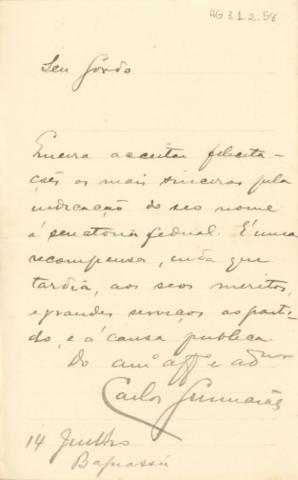 AG 3.1.2.58
Seu Gordo
Queira acceitar felicita-
ções as mais sinceras pela
indicação do seo nome
á senatoria federal. É uma
recompensa, inda que
tardia, aos seos meritos,
e grandes serviços ao parti-
do, e á causa publica.
Do am° aff° e ad
Carlos Guimarães
14 Junho